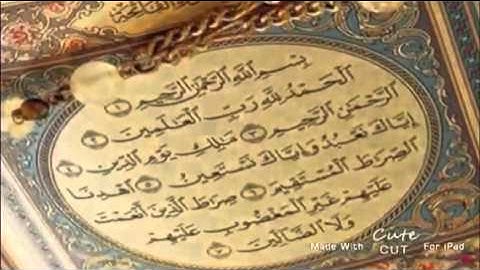 بِسْمِ اللَّهِ الرَّحْمَٰنِ الرَّحِيمِ ١
الْحَمْدُ لِلَّهِ رَبِّ الْعَالَمِينَ ٢
الرَّحْمَٰنِ الرَّحِيمِ ٣ مَٰلِكِ يَوْمِ الدِّينِ ٤
إِيَّاكَ نَعْبُدُ وَإِيَّاكَ نَسْتَعِينُ ٥ اهْدِنَا
الصِّرَٰطَ الْمُسْتَقِيمَ ٦ صِرَٰطَ الَّذِينَ أَنْعَمْتَ
عَلَيْهِمْ غَيْرِ الْمَغْضُوبِ عَلَيْهِمْ
وَلَا الضَّالِّينَ ٧
Made With Cute CUT For iPad